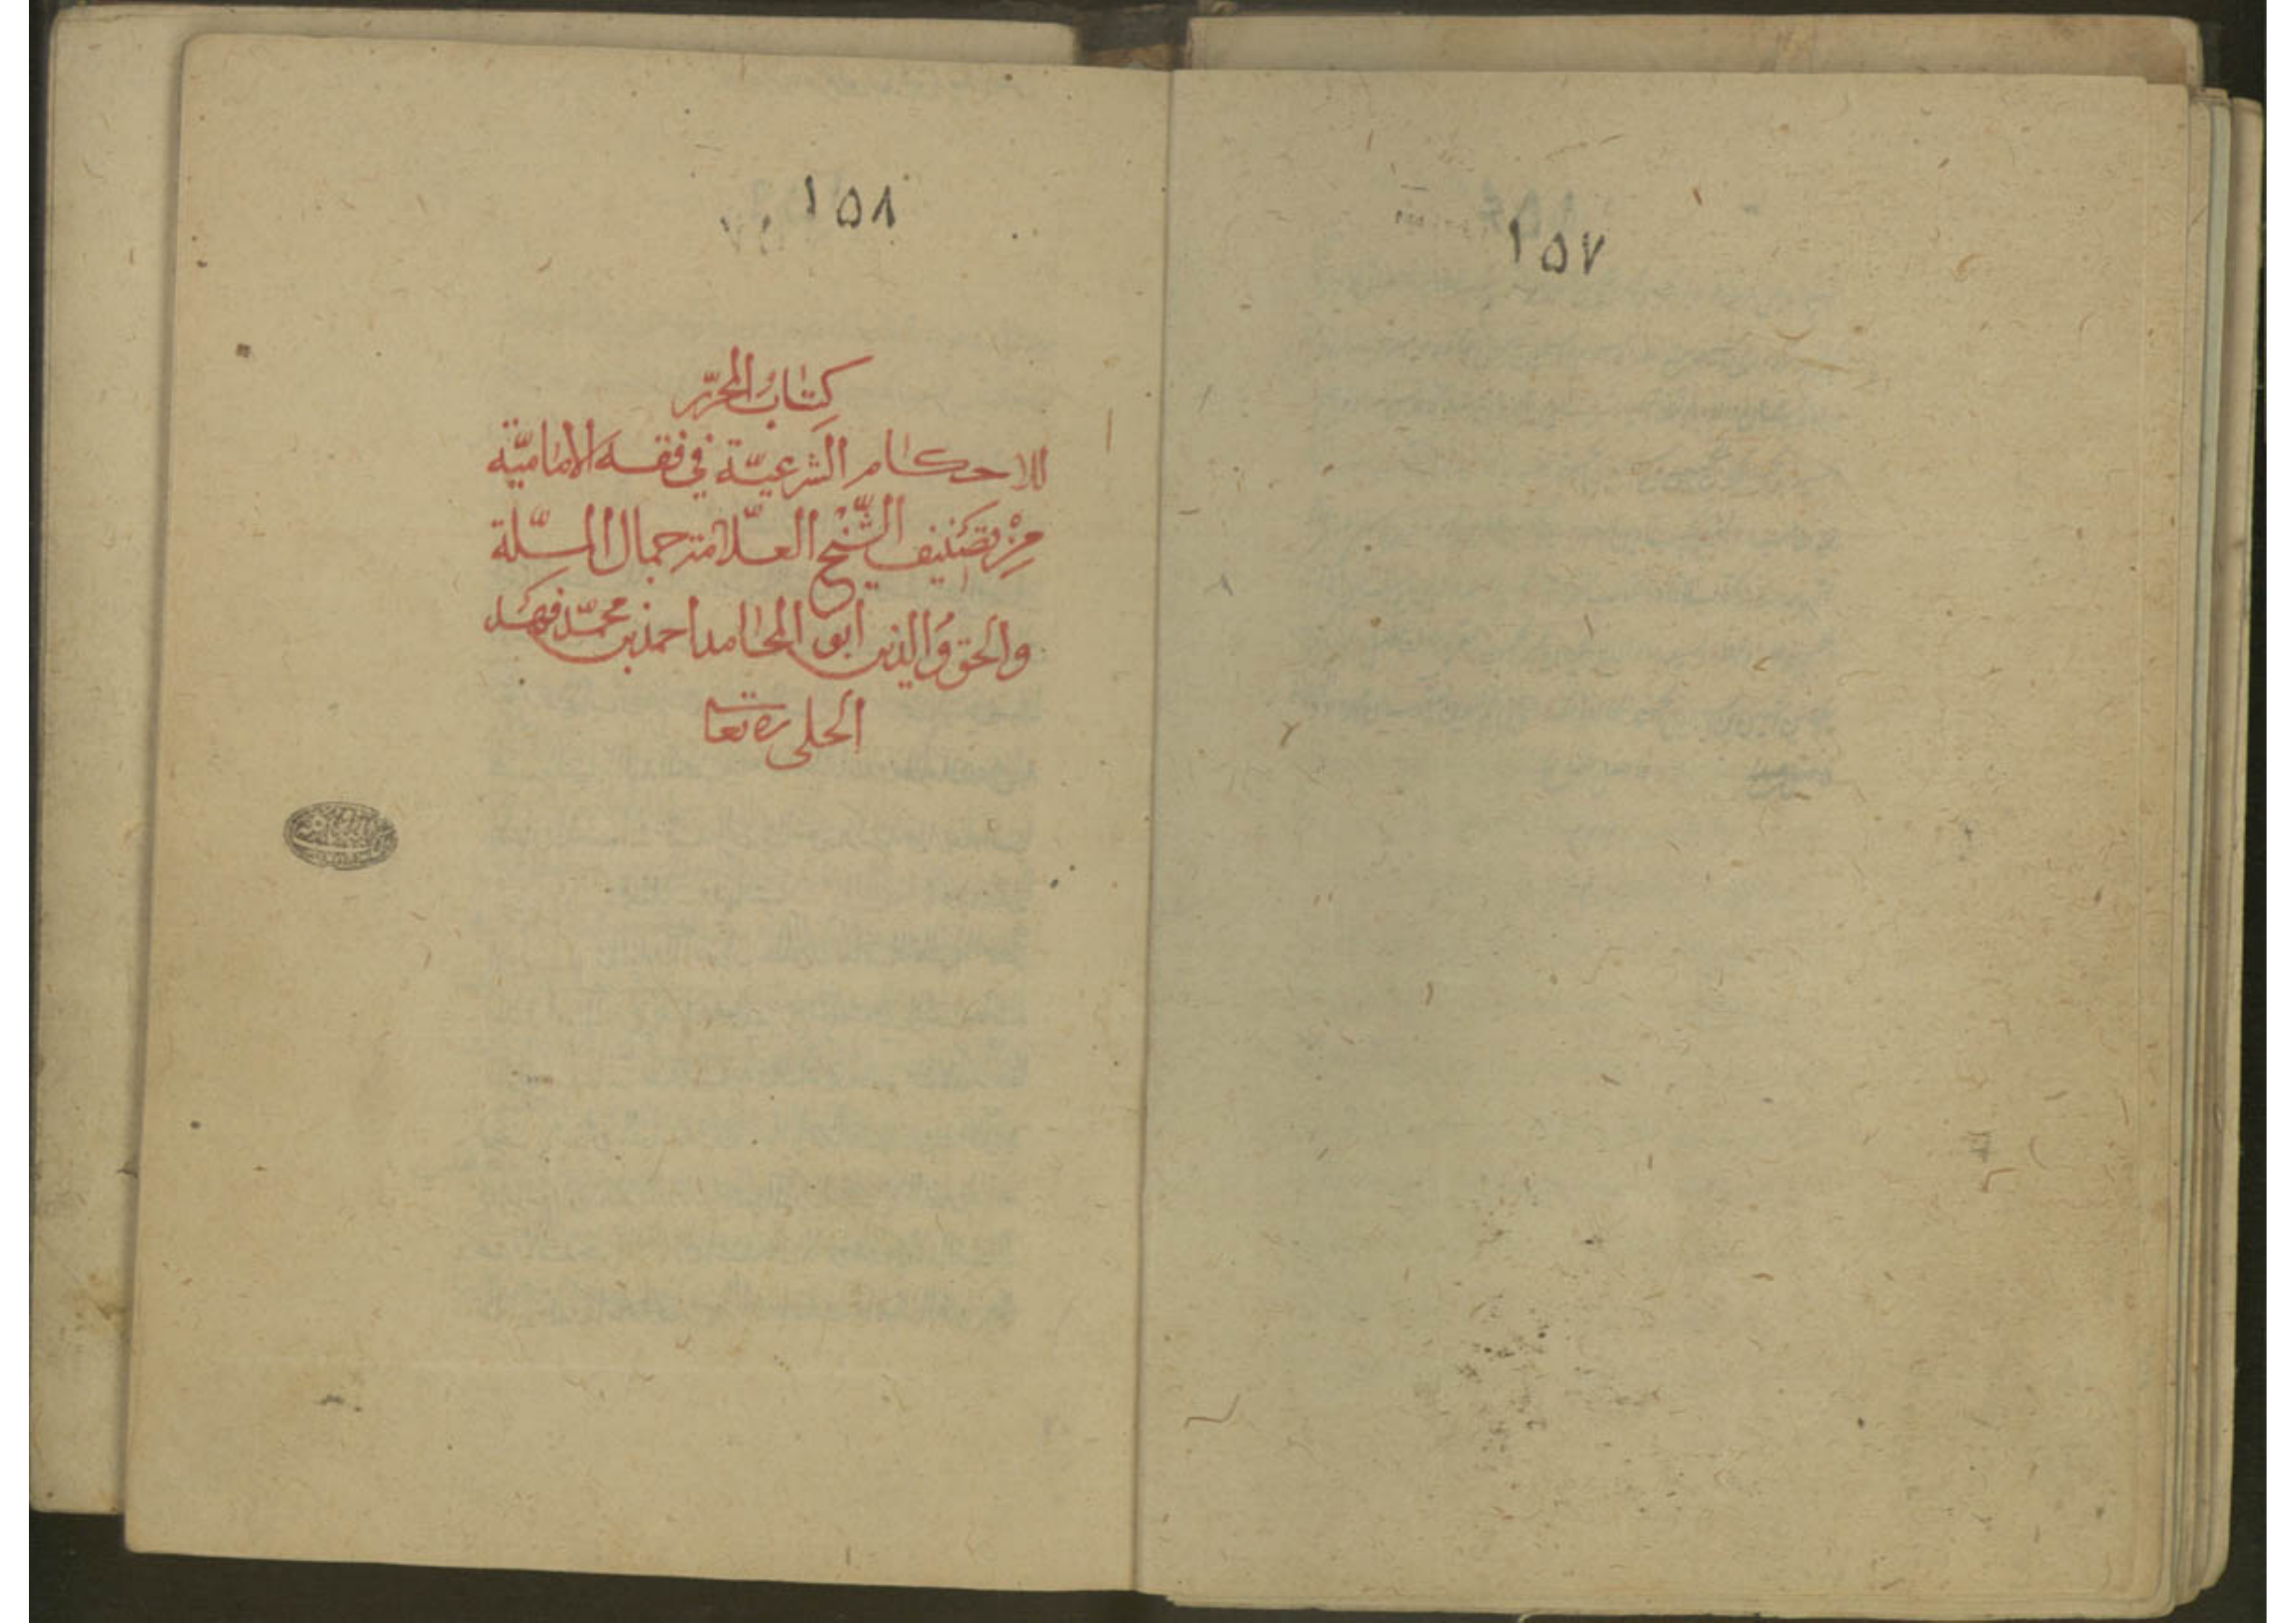 ١٥٧
١٥٨
كتاب المحرّر
للاحكام الشرعيّة في فقه الاماميّة
من تصنيف الشّيخ العلّامة جمال الملّة
والحق والدين ابو المحامد احمد بن محمّد فهد
الحلي ره تعا